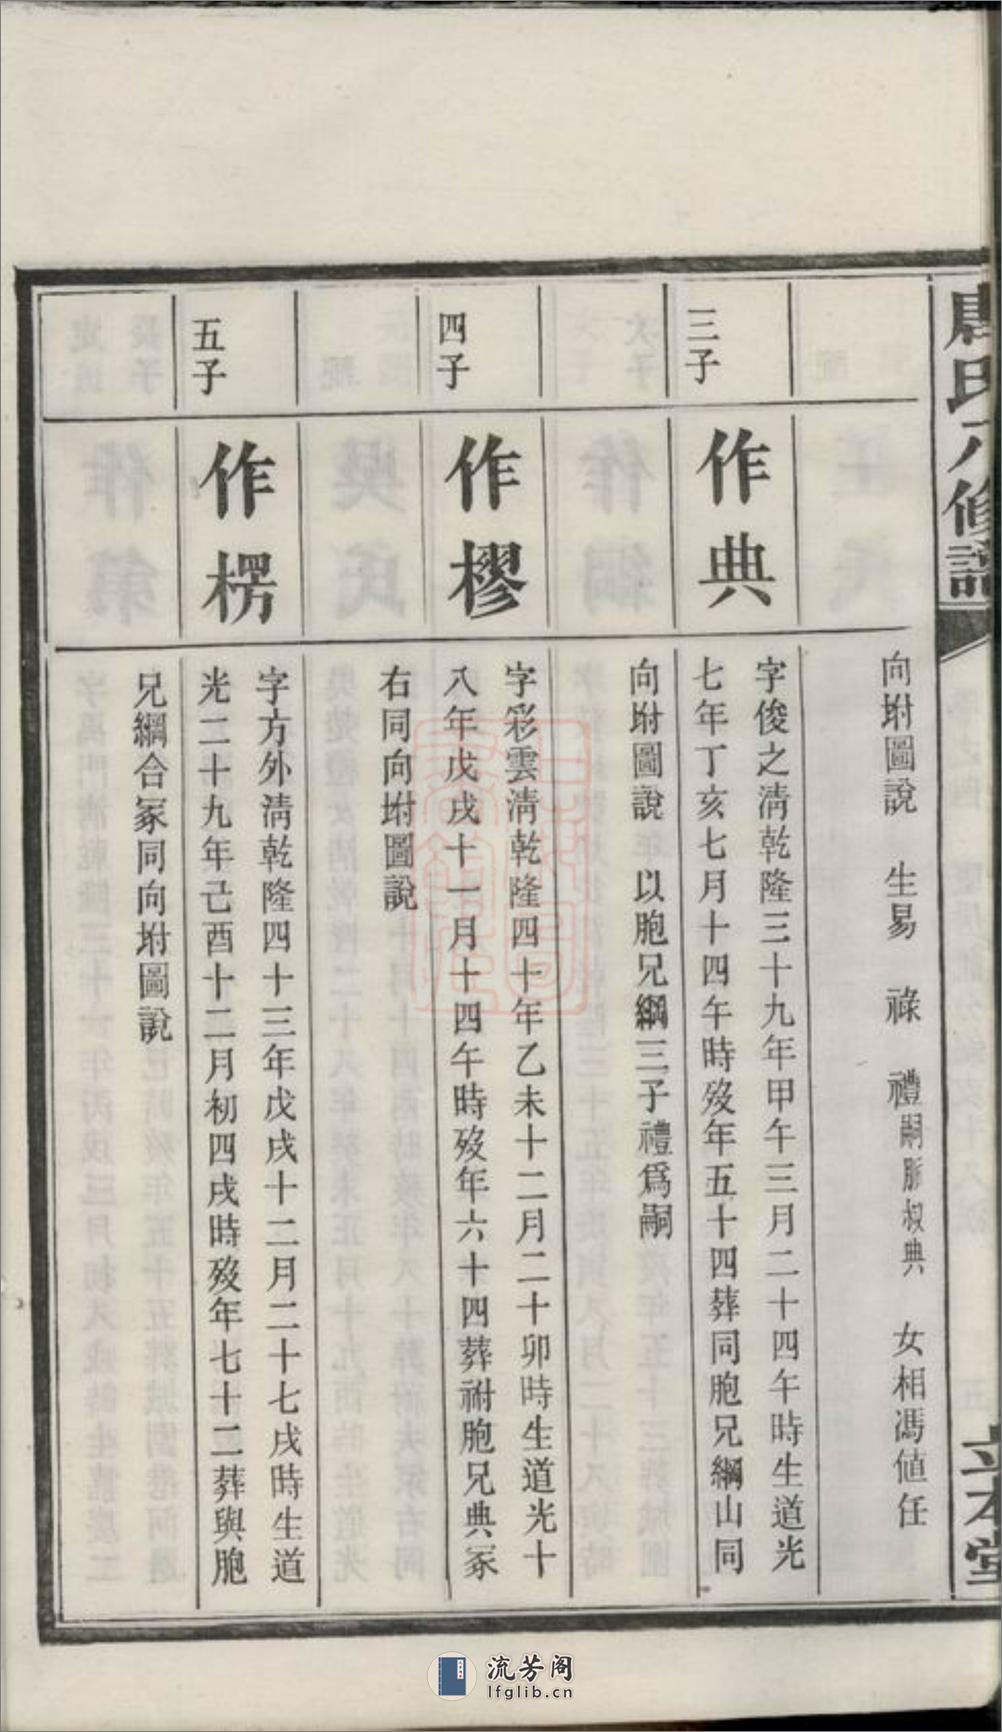 氏六修譜
立本堂
向坿圖說 生易 祿 禮嗣脈叔典 女相馮値任
三子
作典
字俊之淸乾隆三十九年甲午三月二十四午時生道光
七年丁亥七月十四午時歿年五十四葬同胞兄綱山同
向坿圖說 以胞兄綱三子禮爲嗣
四子
作樛
字彩雲淸乾隆四十年乙未十二月二十卯時生道光十
八年戊戌十一月十四午時歿年六十四葬祔胞兄典冢
右同向坿圖說
五子
作楞
字方外淸乾隆四十三年戊戌十二月二十七戌時生道
光二十九年己酉十二月初四戌時歿年七十二葬與胞
兄綱合冢同向坿圖說
流芳阁
lfglib.cn